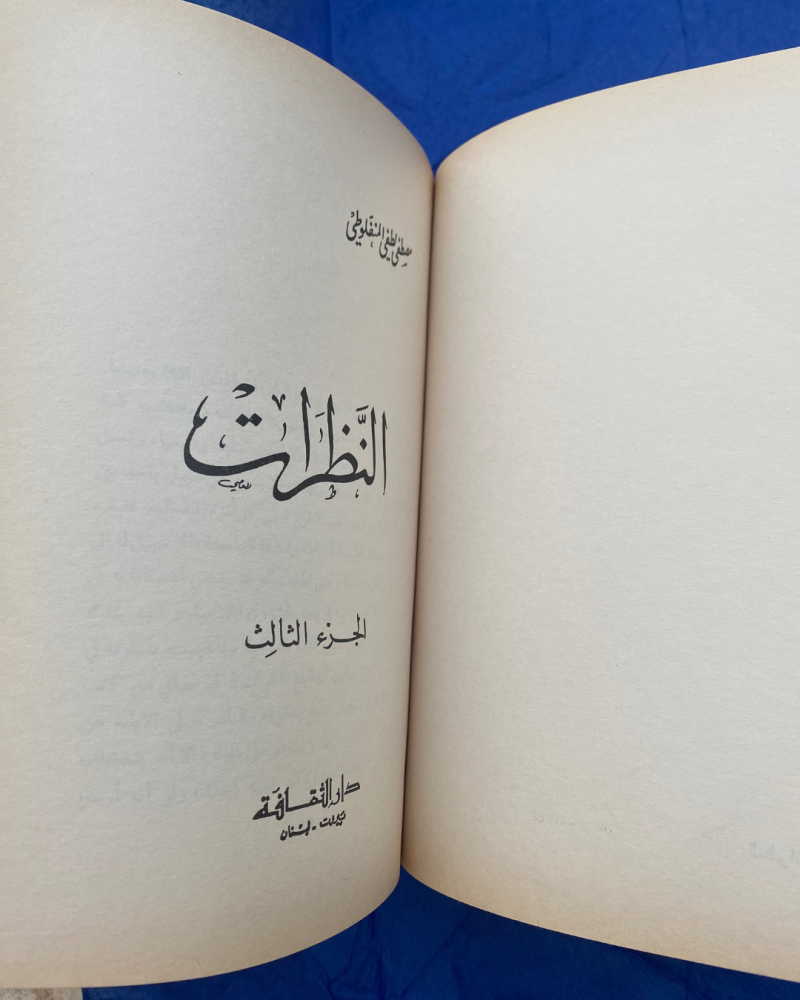 مصطفى لطفي المنفلوطي
النَّظَرَات
الجزء الثالث
دار الثقافة
بيروت - لبنان